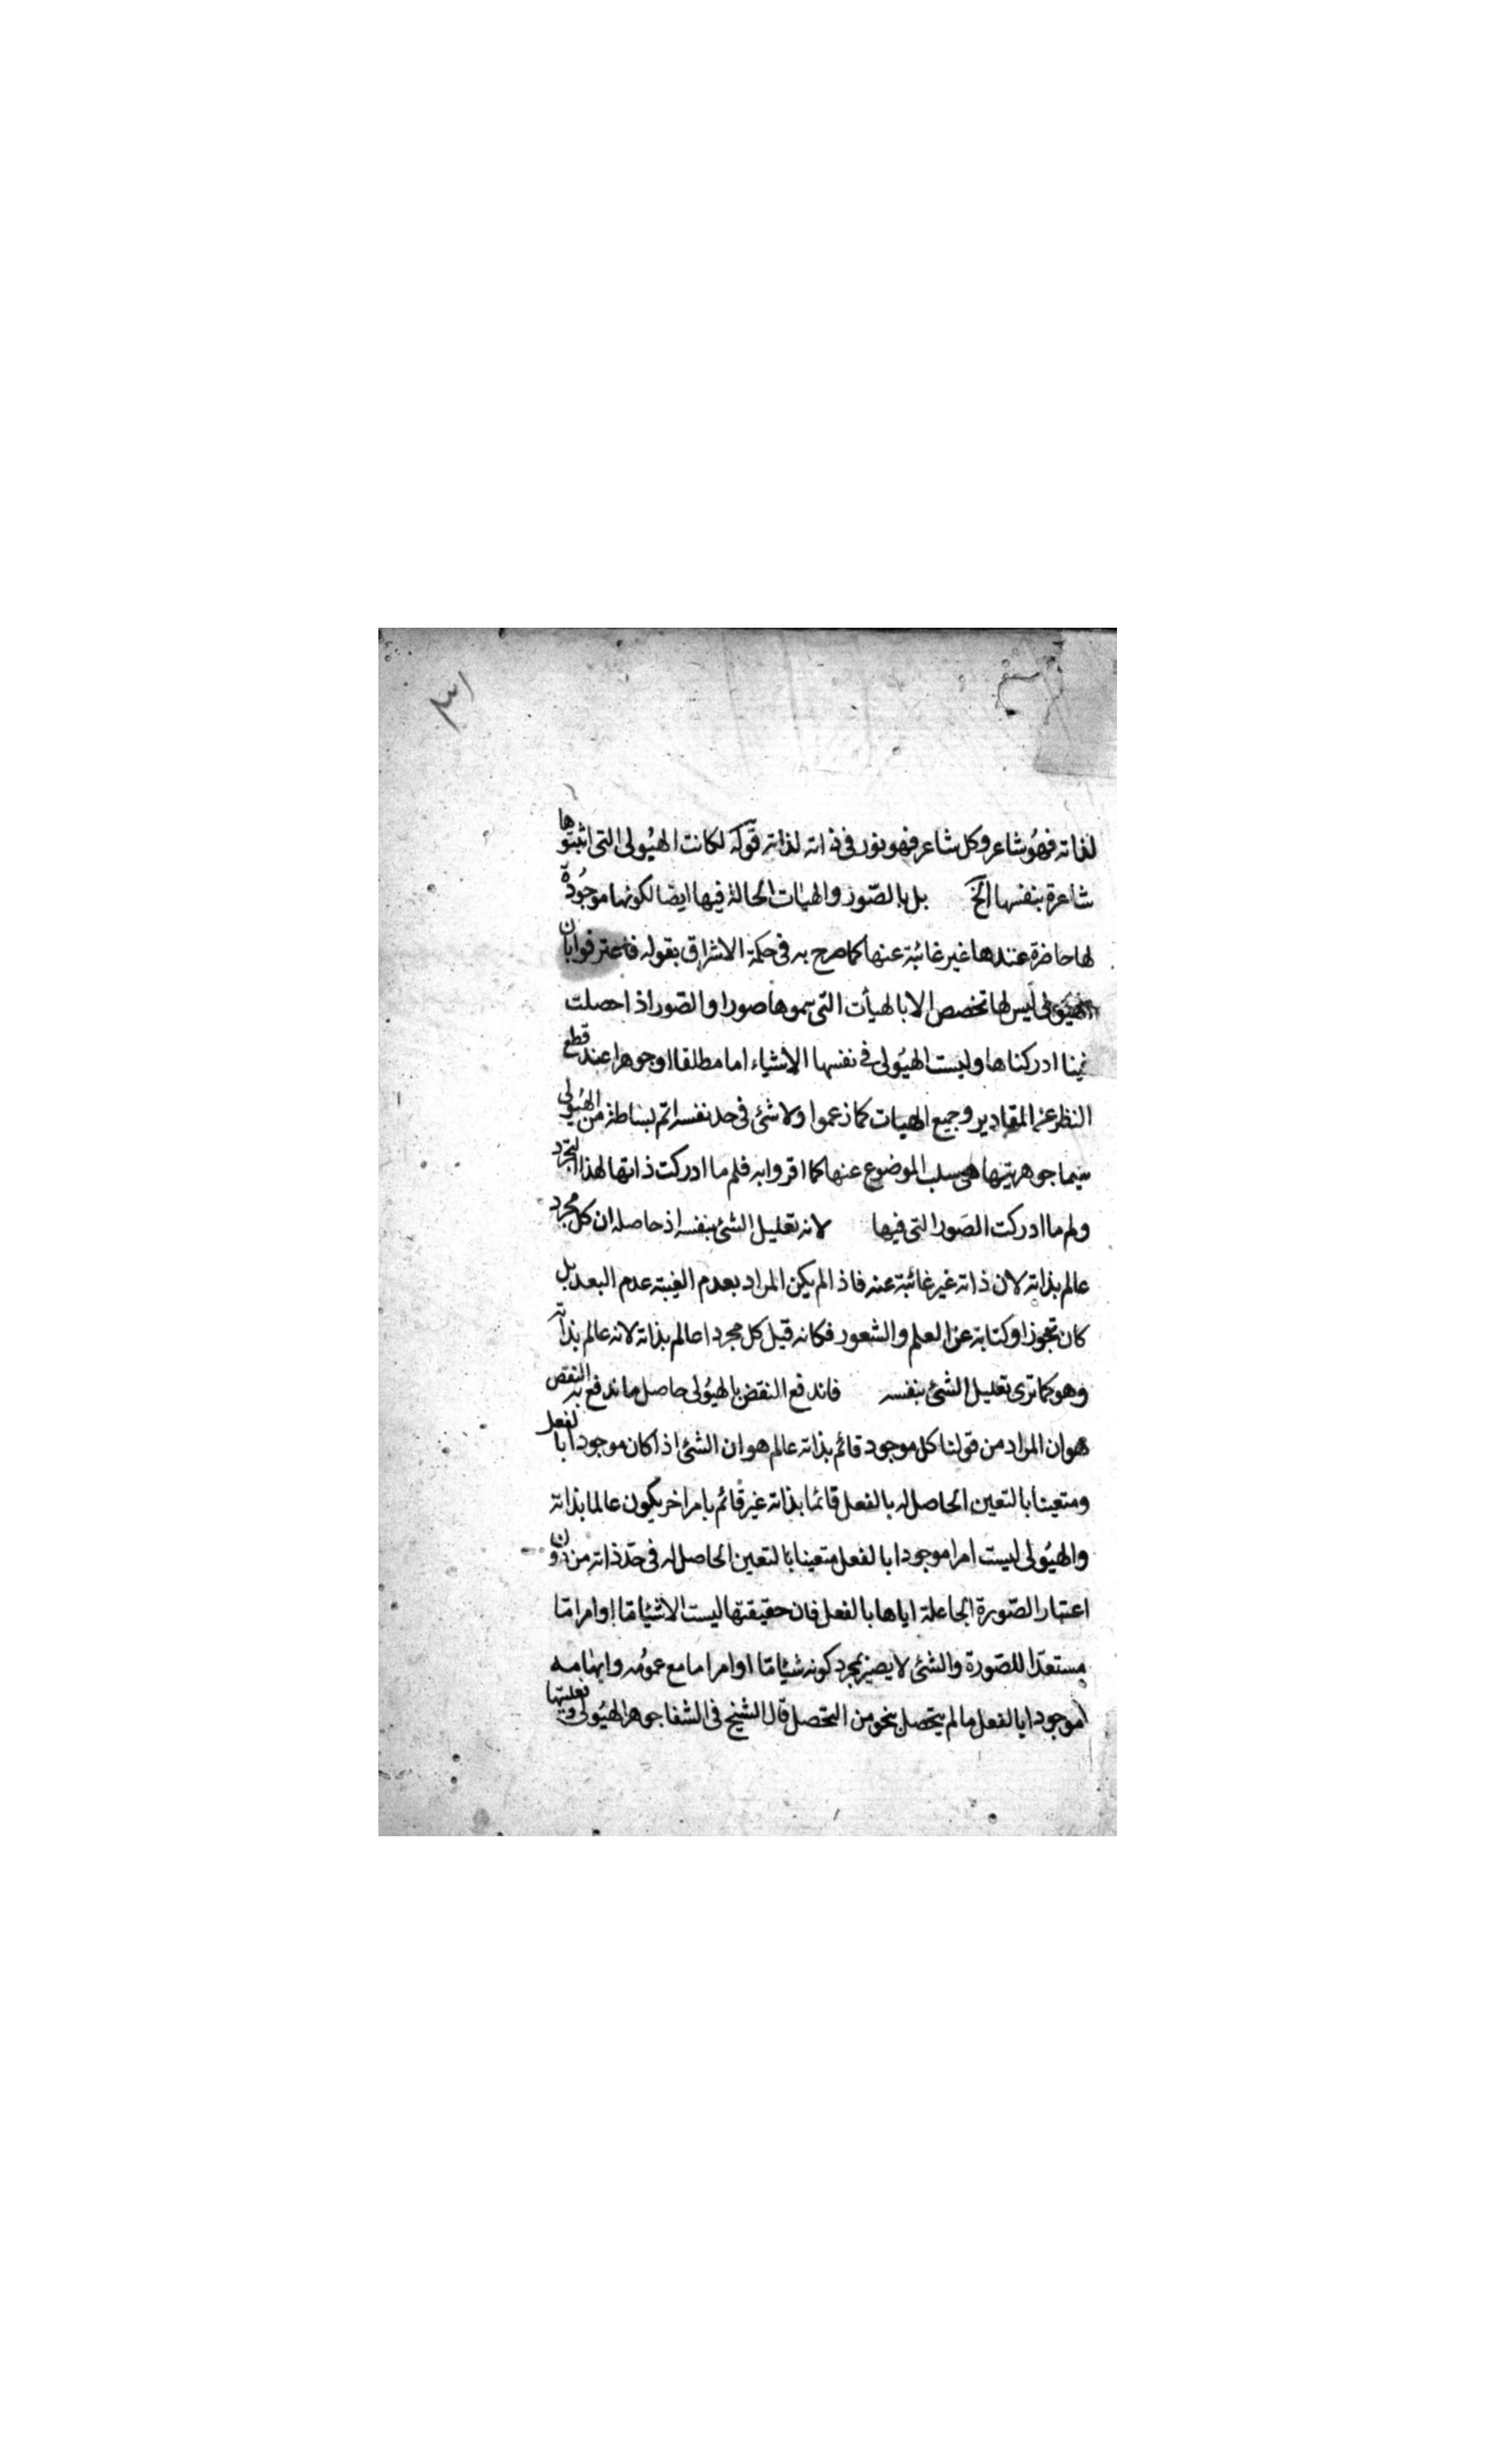 ٣١
لذاته فهو شاعر وكل شاعر فهو نور فى ذاته لذاته قوله لكانت الهيولى التى اثبتوها
شاعرة بنفسها الخ بل بالصّور والهيات الحالة فيها ايضا لكونها موجودة
لها حاضرة عندها غير غائبة عنها كما صرح به فى حكمة الاشراق بقوله فاعترفوا بان
الهيولى ليس لها تخصص الا بالهيأت التى سموها صورا والصور اذا حصلت
فينا ادركناها وليست الهيولى فى نفسها الا شيئا ما مطلقا او جوهرا عند قطع
النظر عن المقادير وجميع الهيات كما زعموا ولا شئ فى حد نفسه اتم بساطة من الهيولى
سيما جوهريتها هى سلب الموضوع عنها كما اقروا به فلم ما ادركت ذاتها لهذا التجرد
ولم ما ادركت الصور التى فيها لانه تعليل الشئ بنفسه اذ حاصله ان كل مجرد
عالم بذاته لان ذاته غير غائبة عنه فاذا لم يكن المراد بعدم الغيبة عدم البعد بل
كان تجوزا وكناية عن العلم والشعور فكانه قيل كل مجرد عالم بذاته لانه عالم بذاته
وهو كما ترى تعليل الشئ بنفسه فاندفع النقض بالهيولى حاصل ما ندفع به النقض
هو ان المراد من قولنا كل موجود قائم بذاته عالم هو ان الشئ اذا كان موجودا بالفعل
ومتعينا بالتعين الحاصل له بالفعل قائما بذاته غير قائم بامر اخر يكون عالما بذاته
والهيولى ليست امرا موجودا بالفعل متعينا بالتعين الحاصل له فى حدّ ذاته من دون
اعتبار الصّورة الجاعلة اياها بالفعل فان حقيقتها ليست الا شيئا مّا او امرا مّا
مستعدّا للصّورة والشئ لا يصير بمجرد كونه شيئا مّا او امرا ما مع عمومه وابهامه
موجودا بالفعل ما لم يتحصل بنحو من التحصل قال الشيخ فى الشفا جوهر الهيولى وفعليتها